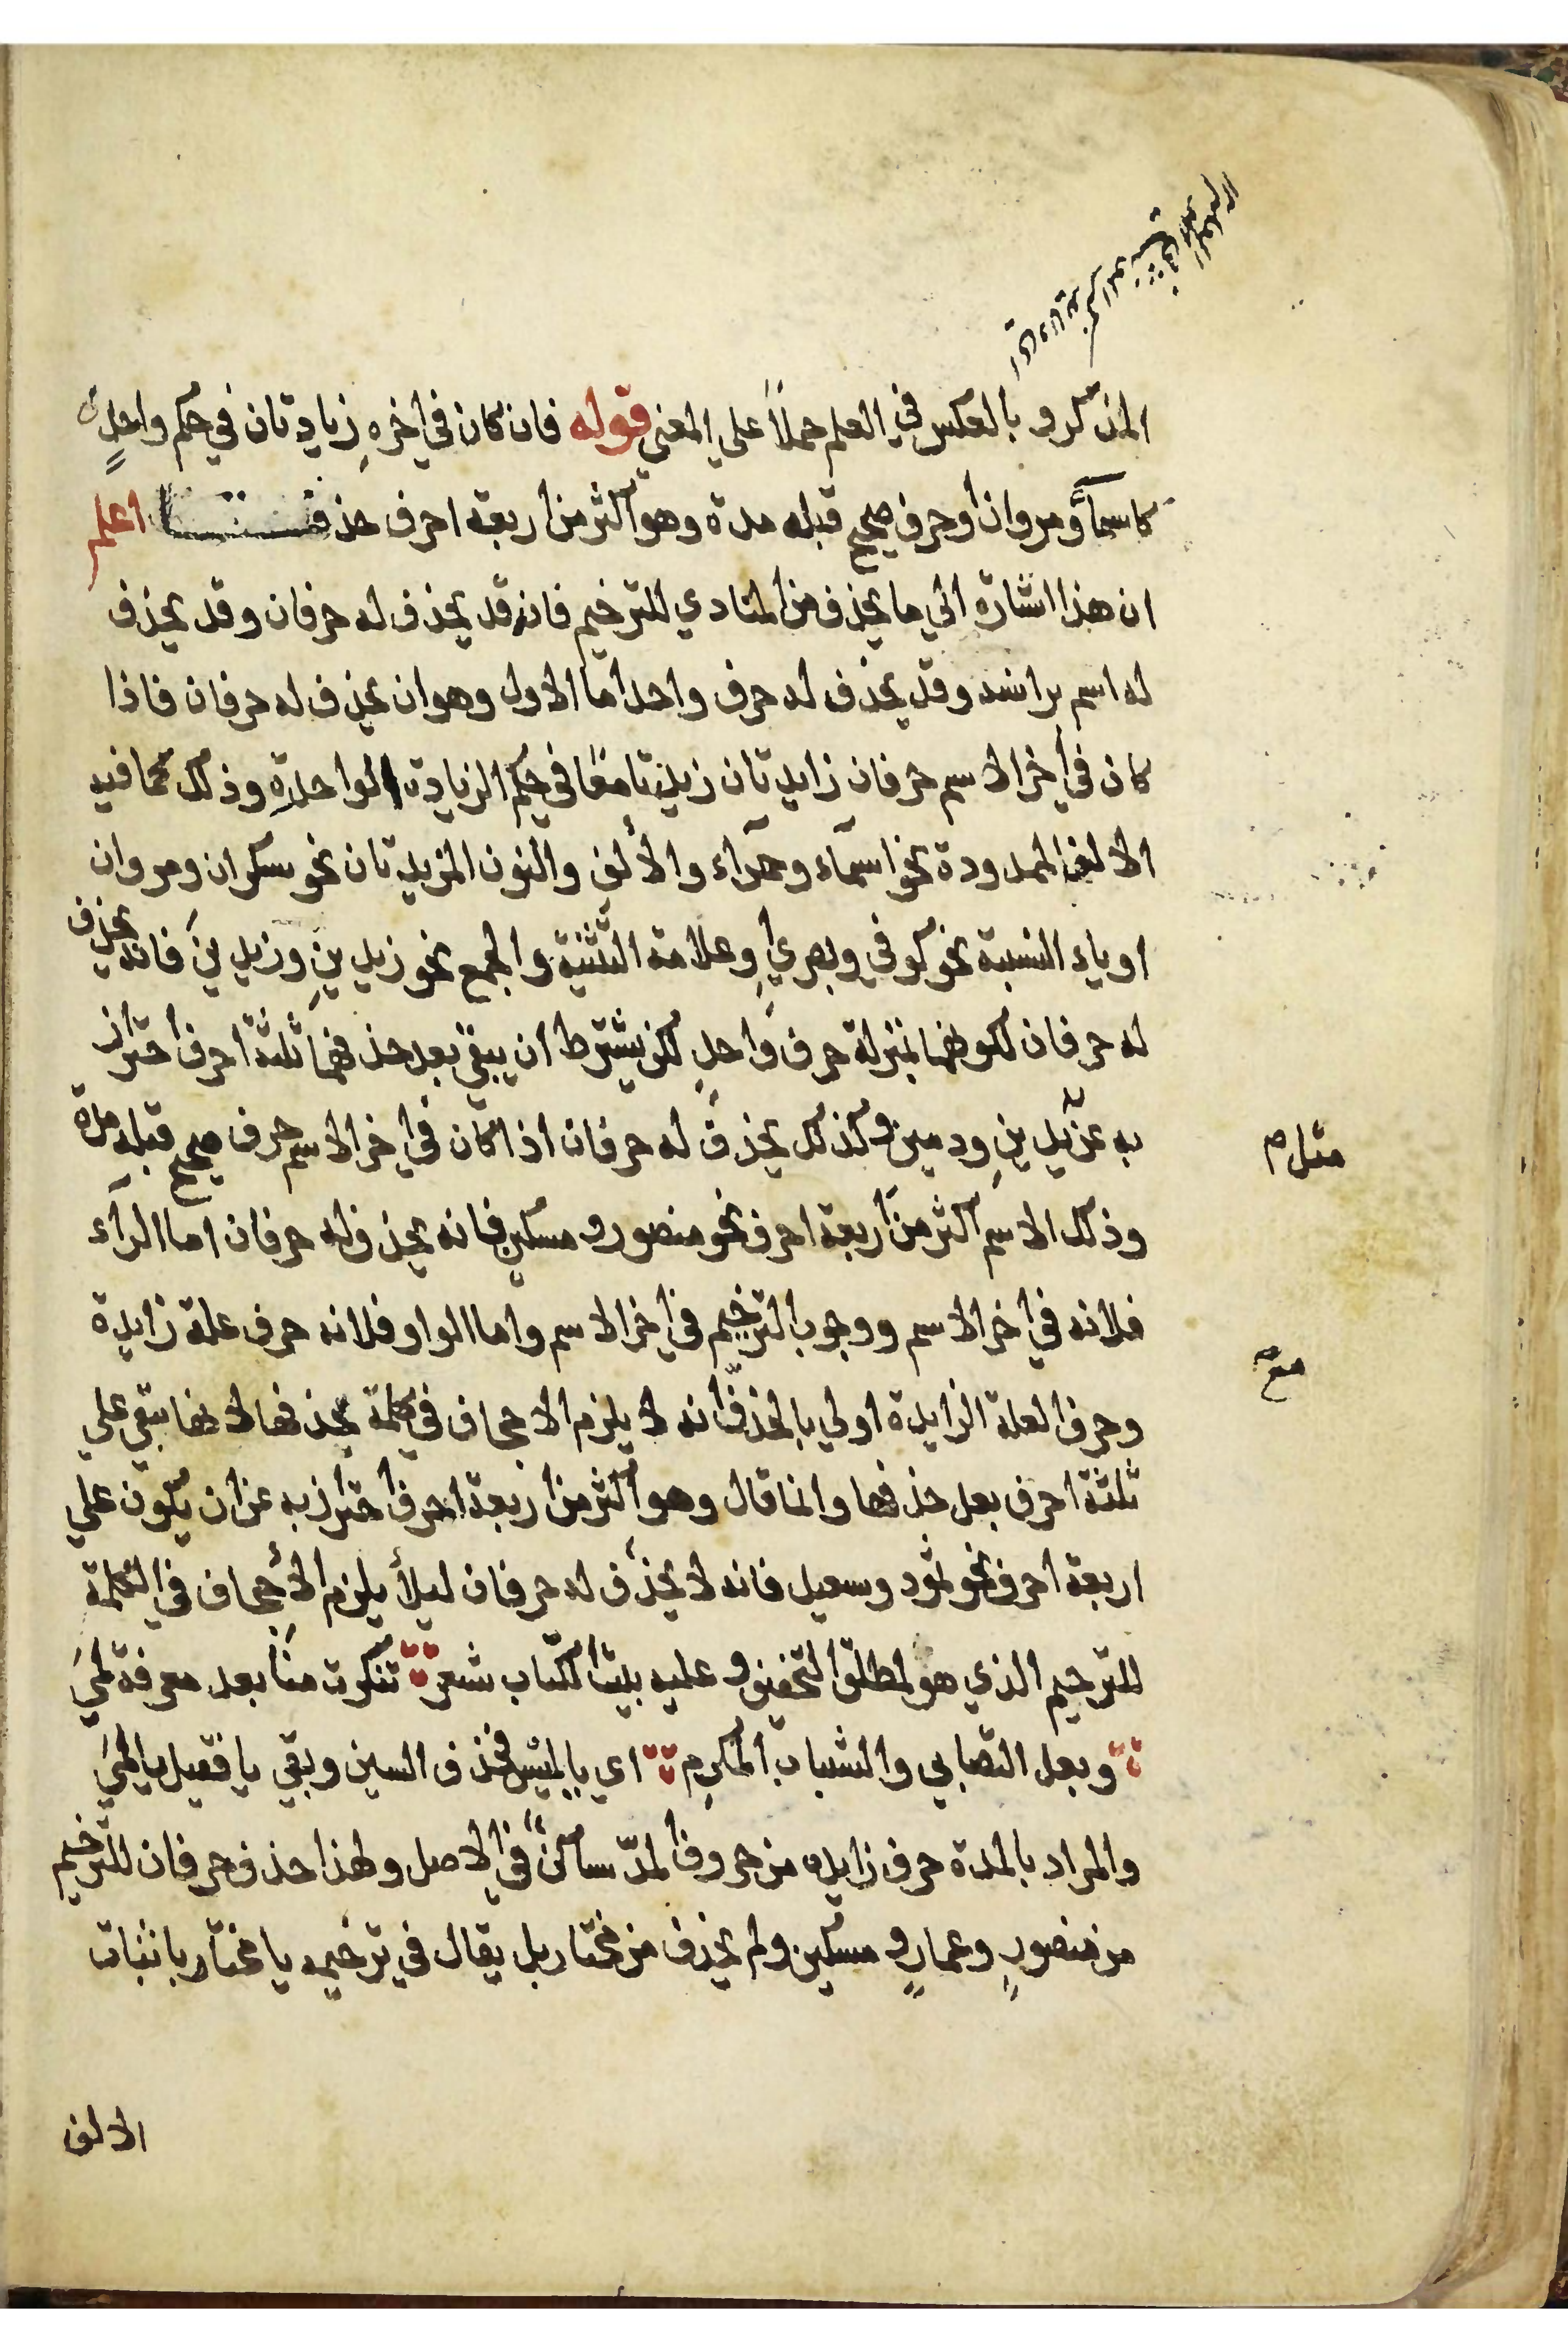 المذكر و بالعكس في العلم حملاً علي المعني قوله فان كان في اخرهِ زيادتان في حكم واحدةٍ
كاسمآءَ ومروان او حرف صحيح قبله مدة وهو اكثر من اربعة احرف حذفتا اعلم
ان هذا اشارة الي ما يحذف من المنادي للترخيم فانه قد يحذف له حرفان وقد يحذف
له اسم براسه وقد يحذف له حرف واحد اما الاول وهو ان يحذف له حرفان فاذا
كان في اخر الاسم حرفان زايدتان زيدتا معًا في حكم الزيادة الواحدة وذلك مما فيه
الالف الممدودة نحو اسمآء وحمرآء والألف والنون المزيدتان نحو سكران ومروان
او ياء النسبة نحو كوفي وبصري وعلامة التثنية والجمع نحو زيدينِ وزيدينَ فانه يحذف
له حرفان لكونهما بمنزلة حرف واحدٍ لكن يشترط ان يبقي بعد حذفهما ثلثة احرف احتراز
به عن يدينِ ودمين وكذلك يحذف له حرفان اذا كان في اخر الاسم حرف صحيح قبله مدة
وذلك الاسم اكثر من اربعة احرف نحو منصور و مسكين فانه يحذف له حرفان اما الرآء
فلانه في اخر الاسم ووجوب الترخيم في اخر الاسم واما الواو فلانه حرف علة زايدة
وحرف العلة الزايدة اولي بالحذف انه لا يلزم الاجحاف في كلمة بحذفها لانها تبقي علي
ثلثة احرف بعد حذفها وانما قال وهو اكثر من اربعة احرف احترازبه عن ان يكون علي
اربعة احرف نحو ثمود وسعيد فانه لا يحذف له حرفان ليلأ يلزم الأجحاف في الكلمة
للترخيم الذي هو لمطلق التخفيف و عليه بيت الكتاب شعر تنكرت منا بعد معرفة لمي
وبعد التصابي والشباب المكرم اي يا لميس فحذف السين وبقي يا فقيل يا لمي
والمراد بالمدة حرف زايده من حروف المدّ ساكنٌ في الاصل ولهذا حذف حرفان للترخيم
من منصورٍ وعمارٍ و مسكين ولم يحذف من مختار بل يقال في ترخيمه يا مختار باثبات
الالف